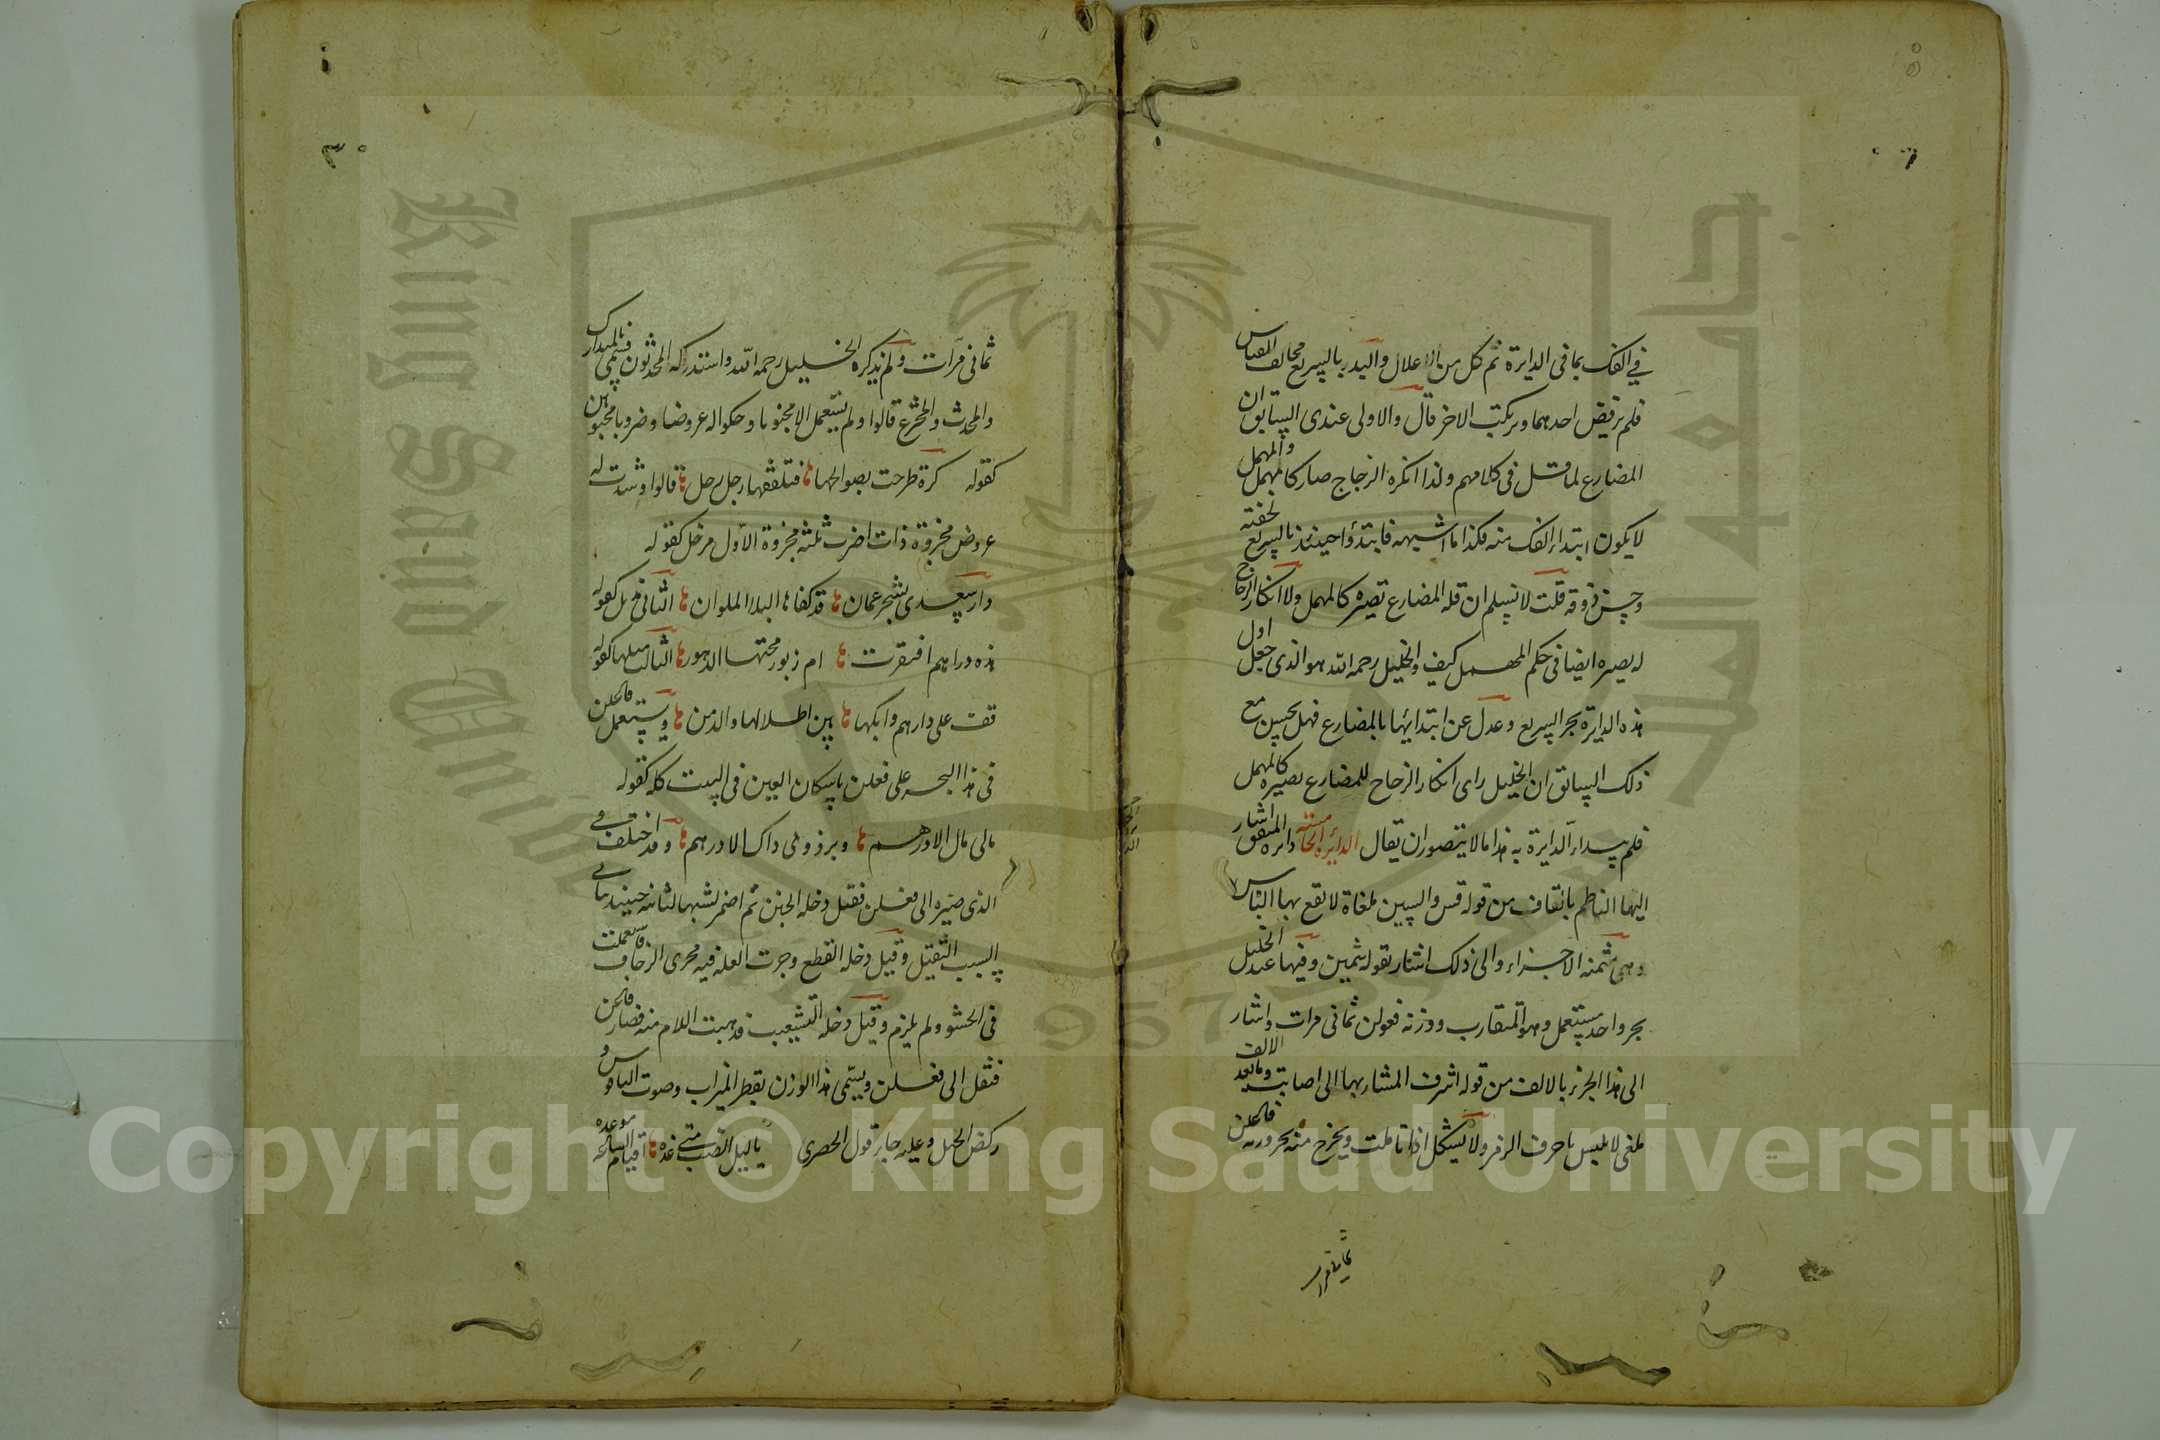 في الفك بما في الدايرة ثم كل من الاعلال والبدء بالسريع مخالف القياس
فلم يرفض احدهما ويرتكب الاخر قال والاولى عندي السابق ان
المضارع لما قل في كلامهم ولذا انكره الزجاج صار كالمهمل والمهمل
لا يكون ابتداء الفك منه فكذا ما اشبهه فابتدؤا حينئذ بالسريع لخفته
وحسن ذوقه قلت لا نسلم ان قلة المضارع تصيره كالمهمل ولا انكار الزجاج
له يصيره ايضا في حكم المهمل كيف والخليل رحمه الله هو الذي جعل اول
هذه الدايرة بحر السريع وعدل عن ابتدايها بالمضارع فهل يحسن مع
ذلك السابق ان الخليل راى انكار الزجاج للمضارع يصيره كالمهمل
فلم يبداء الدايرة به هذا ما لا يتصور ان يقال الدائرة الخامسة دائرة المتفق اشار
اليها الناظم بالقاف من قوله قس والسين ملغاة لا يقع بها الباس
وهي مثمنة الاجزاء والى ذلك اشار بقوله ثمين وفيها عند الخليل
بحر واحد مستعمل وهو المتقارب ووزنه فعولن ثماني مرات واشار
الى هذا الجزء بالالف من قوله اشرف المشار بها الى اصابت وما بعد الالف
ملغى لا يلبس باحرف الرمز ولا يشكل اذا تاملت ويخرج منه بحر وزنه فاعلن
ثماني مرات
ثماني مرات ولم يذكره الخليل رحمه الله واستدركه المحدثون فسمي بالمتدارك
والمحدث والمخترع قالوا ولم يستعمل الا مخبونا وحكوا له عروضا وضربا مخبونين
كقوله كرة طرحت بصوالجها ها فتلقفها رجل رجل ها قالوا وشذت له
عروض مجزوة ذات اضرب ثلثة مجزوة الاول مرفل كقوله
دار سعدى بشحر عمان ها قد كفاها البلا الملوان ها الثاني مذيل كقوله
هذه دراهم اقفرت ها ام زبور محتها الدهور ها الثالث مثلها كقوله
قف على دارهم وابكها ها بين اطلالها والدمن ها ويستعمل فاعلن
في هذا البحر على فعلن باسكان العين في البيت كله كقوله
مالي مال الا درهم ها وبرذوني ذاك الادهم ها وقد اختلف في
الذي صيره الى فعلن فقيل دخله الخبن ثم اضمر لشبهها لثانيه حينئذ بثاني
السبب الثقيل وقيل دخله القطع وجرت العلة فيه مجرى الزحاف فاستعملت
في الحشو ولم يلزم وقيل دخله التشعيث فذهبت اللام منه فصار فاعن
فنقل الى فعلن ويسمى هذا الوزن بقطر الميزاب وصوت الناقوس و
ركض الخيل وعليه جاء قول الحصري يا ليل الصب متى غده ها اقيام الساعة موعده